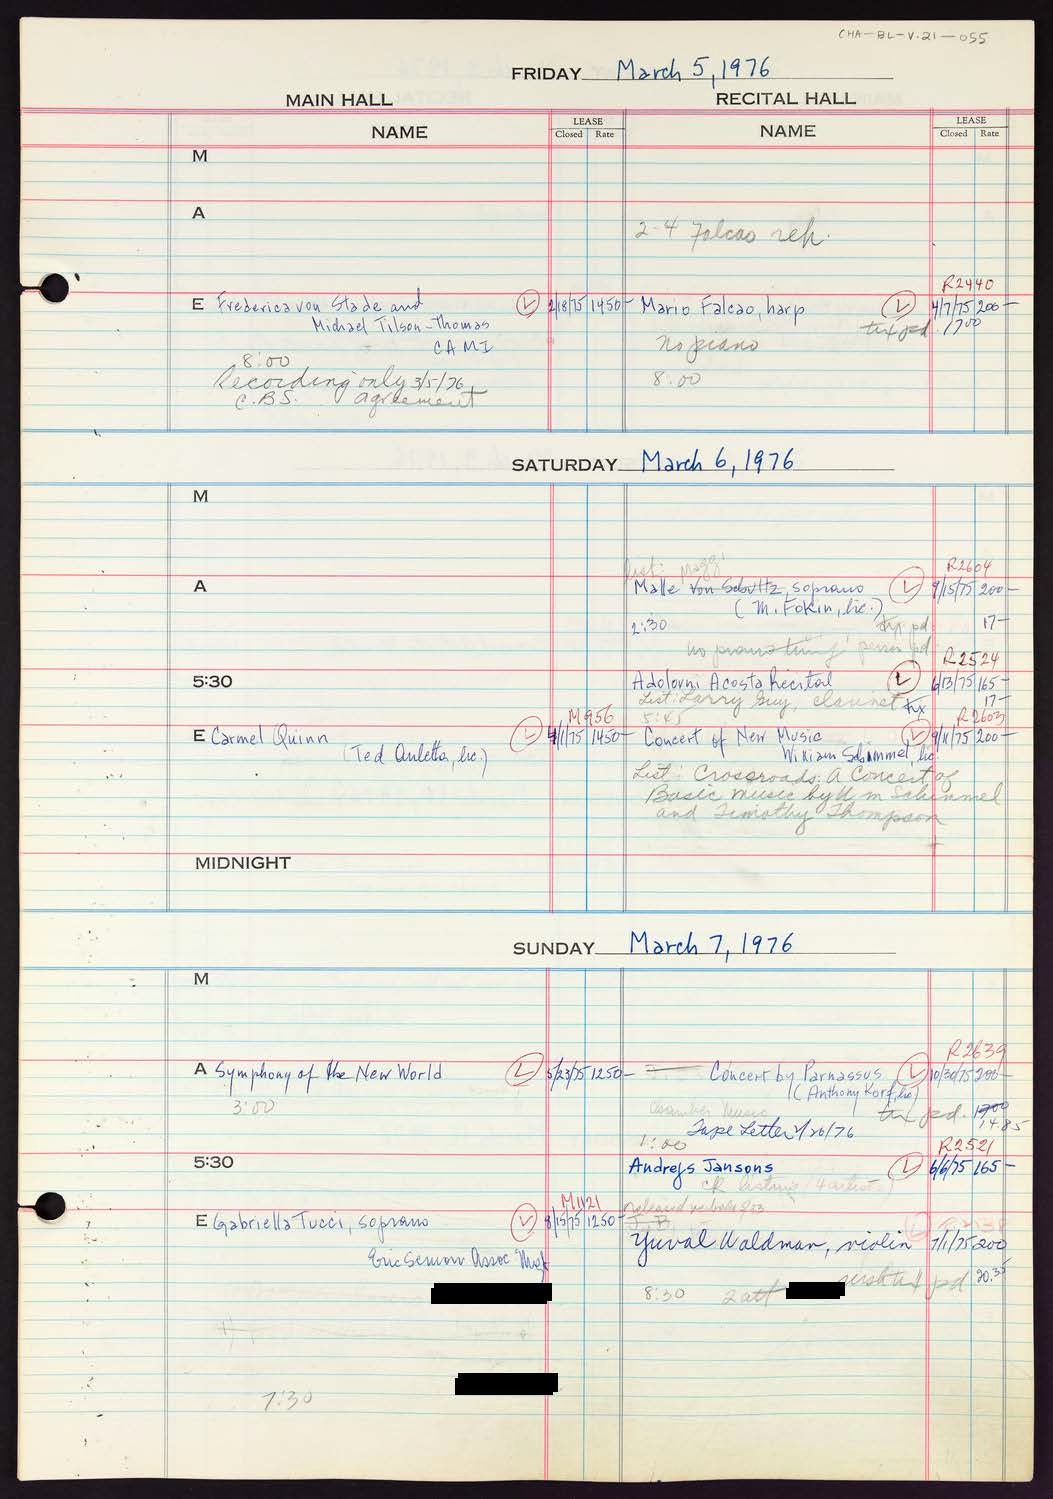 CHA-BL-V.21-055
FRIDAY March 5, 1976
MAIN HALL
RECITAL HALL
NAME
LEASE
Closed Rate
NAME
LEASE
Closed Rate
M
A
2-4 Falcao reh.
R2440
E Frederica von Stade and 2/18/75 1450-
Michael Tilson-Thomas
CAMI
8:00
Recording only 3/5/76
C.B.S. agreement
Mario Falcao, harp 4/7/75 200-
tax pd. 17.00
no piano
8:00
SATURDAY March 6, 1976
M
R2604
A
List:
Malle von Schultz, soprano 9/15/75 200-
(M. Fokin, lic.)
2:30 pd. 17-
no piano tuning pd.
R2524
5:30
Adolovni Acosta Recital 6/13/75 165-
List: Larry Guy, clarinet tax 17-
5:45
M956
R2603
E Carmel Quinn 4/1/75 1450-
(Ted Auletta, lic.)
Concert of New Music 9/11/75 200-
William Schimmel, lic.
List: Crossroads: A Concert of
Basic music by Wm Schimmel
and Timothy Thompson
MIDNIGHT
SUNDAY March 7, 1976
M
R2639
A Symphony of the New World 5/23/75 1250-
3:00
Concert by Parnassus 10/30/75 200-
(Anthony Korf, lic)
Chamber Music tax pd. 17.00
14.85
Tape Letter 1/20/76
1:00
R2521
5:30
Andrejs Jansons 6/6/75 165-
M1121
E Gabriella Tucci, soprano 8/15/75 1250-
Eric Semon Assoc Mgt
released
Yuval Waldman, violin 7/1/75 200
8:30 2 att pd 20.35
7:30